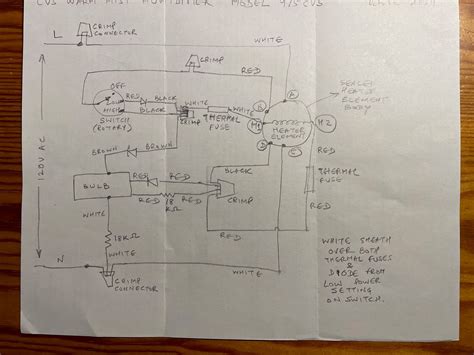 CVS WARM MIST HUMIDIFIER MODEL 975CVS
L
CRIMP
CONNECTOR
WHITE
CRIMP
RED
OFF
LOW
HIGH
RED
BLACK
BLACK
SWITCH
(ROTARY)
WHITE
CRIMP
THERMAL
FUSE
WHITE
A
B
H1
H2
HEATER
ELEMENT
D
C
SEALED
HEATER
ELEMENT
BODY
120V AC
BROWN
BROWN
BLACK
RED
RED
THERMAL
FUSE
BULB
RED
RED
RED
RED
18
KΩ
CRIMP
RED
WHITE
18KΩ
WHITE
N
CRIMP
CONNECTOR
WHITE
WHITE SHEATH
OVER BOTH
THERMAL FUSES
&
DIODE FROM
LOW POWER
SETTING
ON SWITCH.